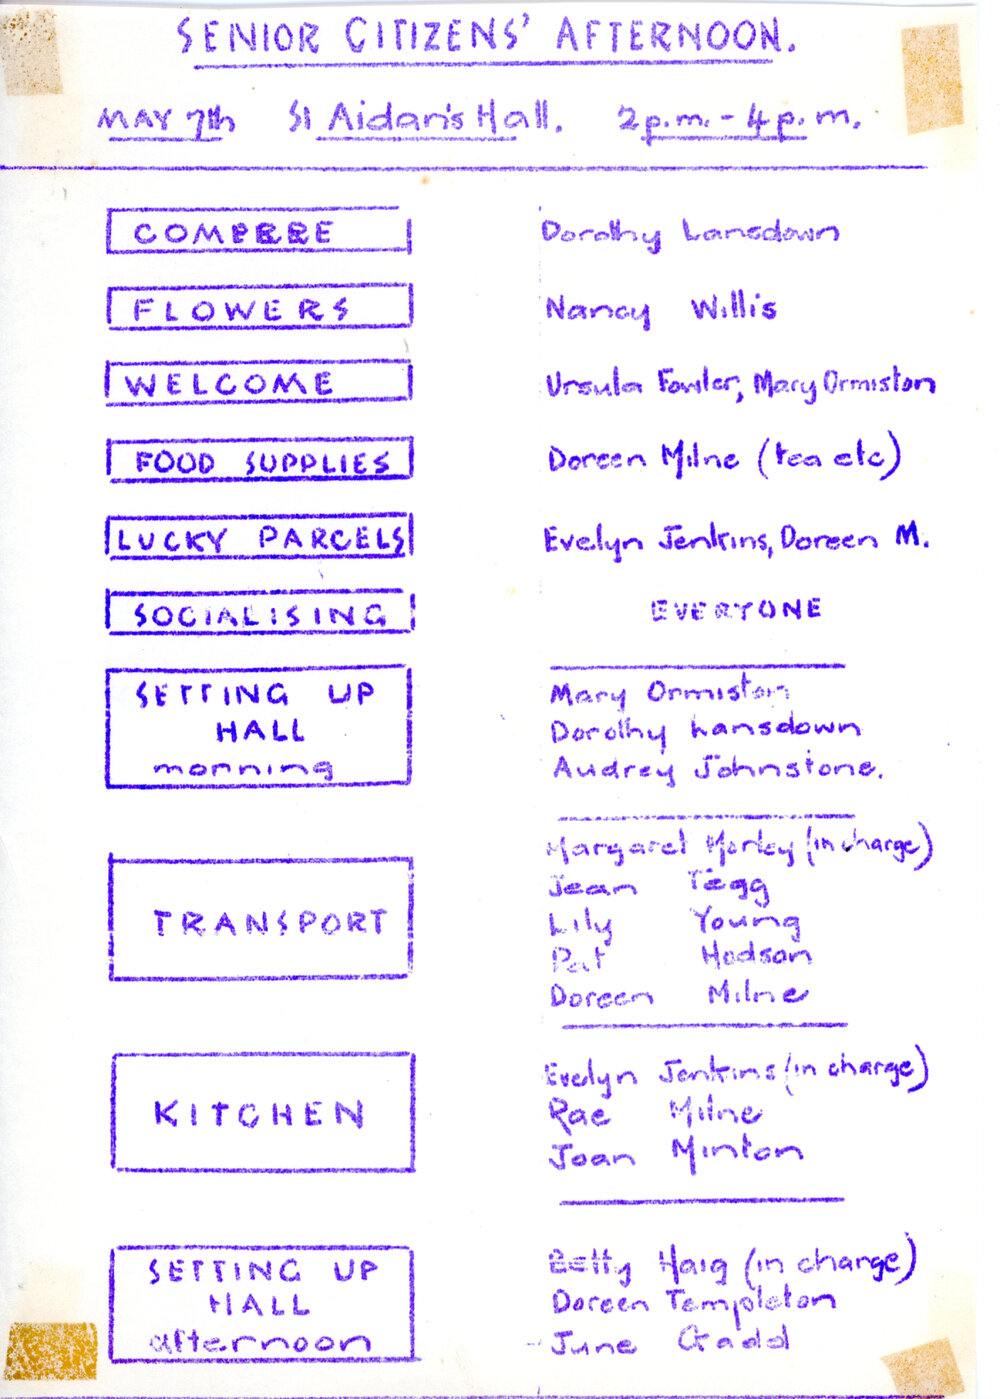 SENIOR CITIZENS' AFTERNOON.
MAY 7th St Aidan's Hall. 2p.m. - 4p.m.
COMPERE Dorothy Lansdown
FLOWERS Nancy Willis
WELCOME Ursula Fowler, Mary Ormiston
FOOD SUPPLIES Doreen Milne (tea etc)
LUCKY PARCELS Evelyn Jenkins, Doreen M.
SOCIALISING EVERYONE
SETTING UP
HALL
morning
Mary Ormiston
Dorothy Lansdown
Audrey Johnstone.
TRANSPORT
Margaret Morley (in charge)
Jean Tegg
Lily Young
Pat Hodson
Doreen Milne
KITCHEN
Evelyn Jenkins (in charge)
Rae Milne
Joan Minton
SETTING UP
HALL
afternoon
Betty Haig (in charge)
Doreen Templeton
June Gadd